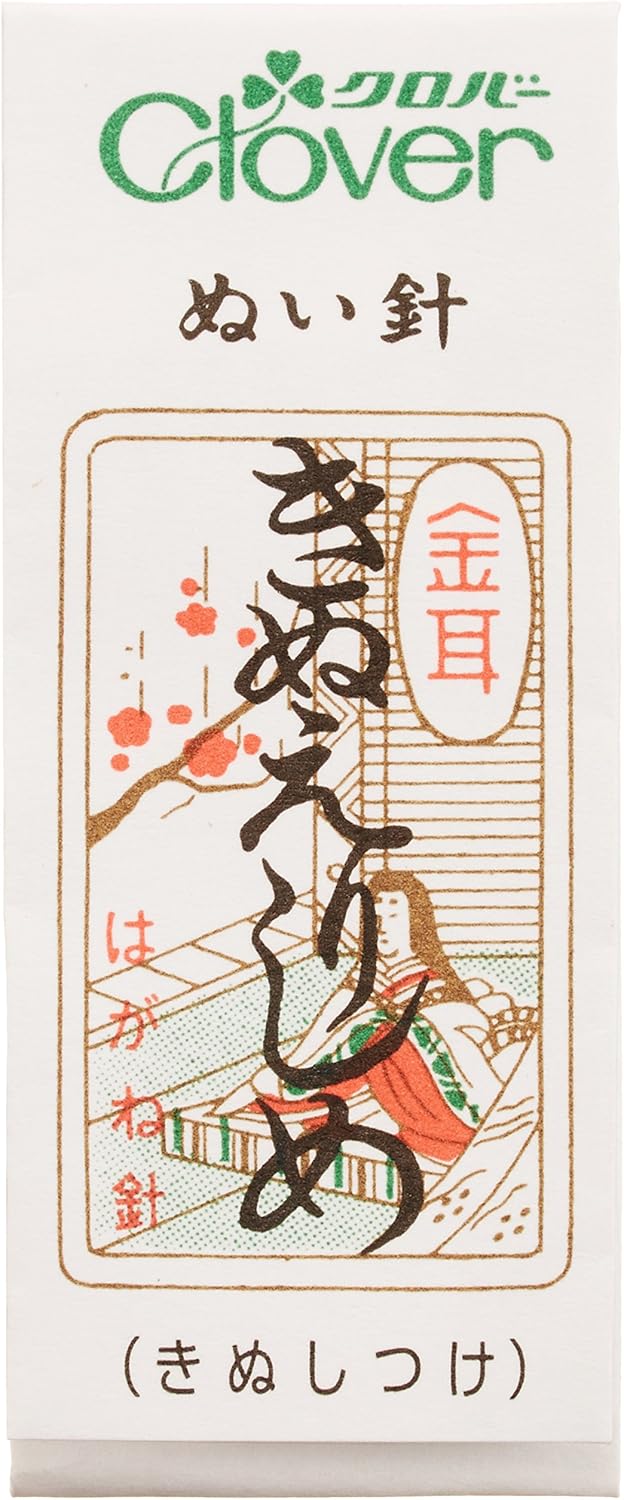 クロバー
Clover
ぬい針
金耳
きぬえりしめ
はがね針
(きぬしつけ)